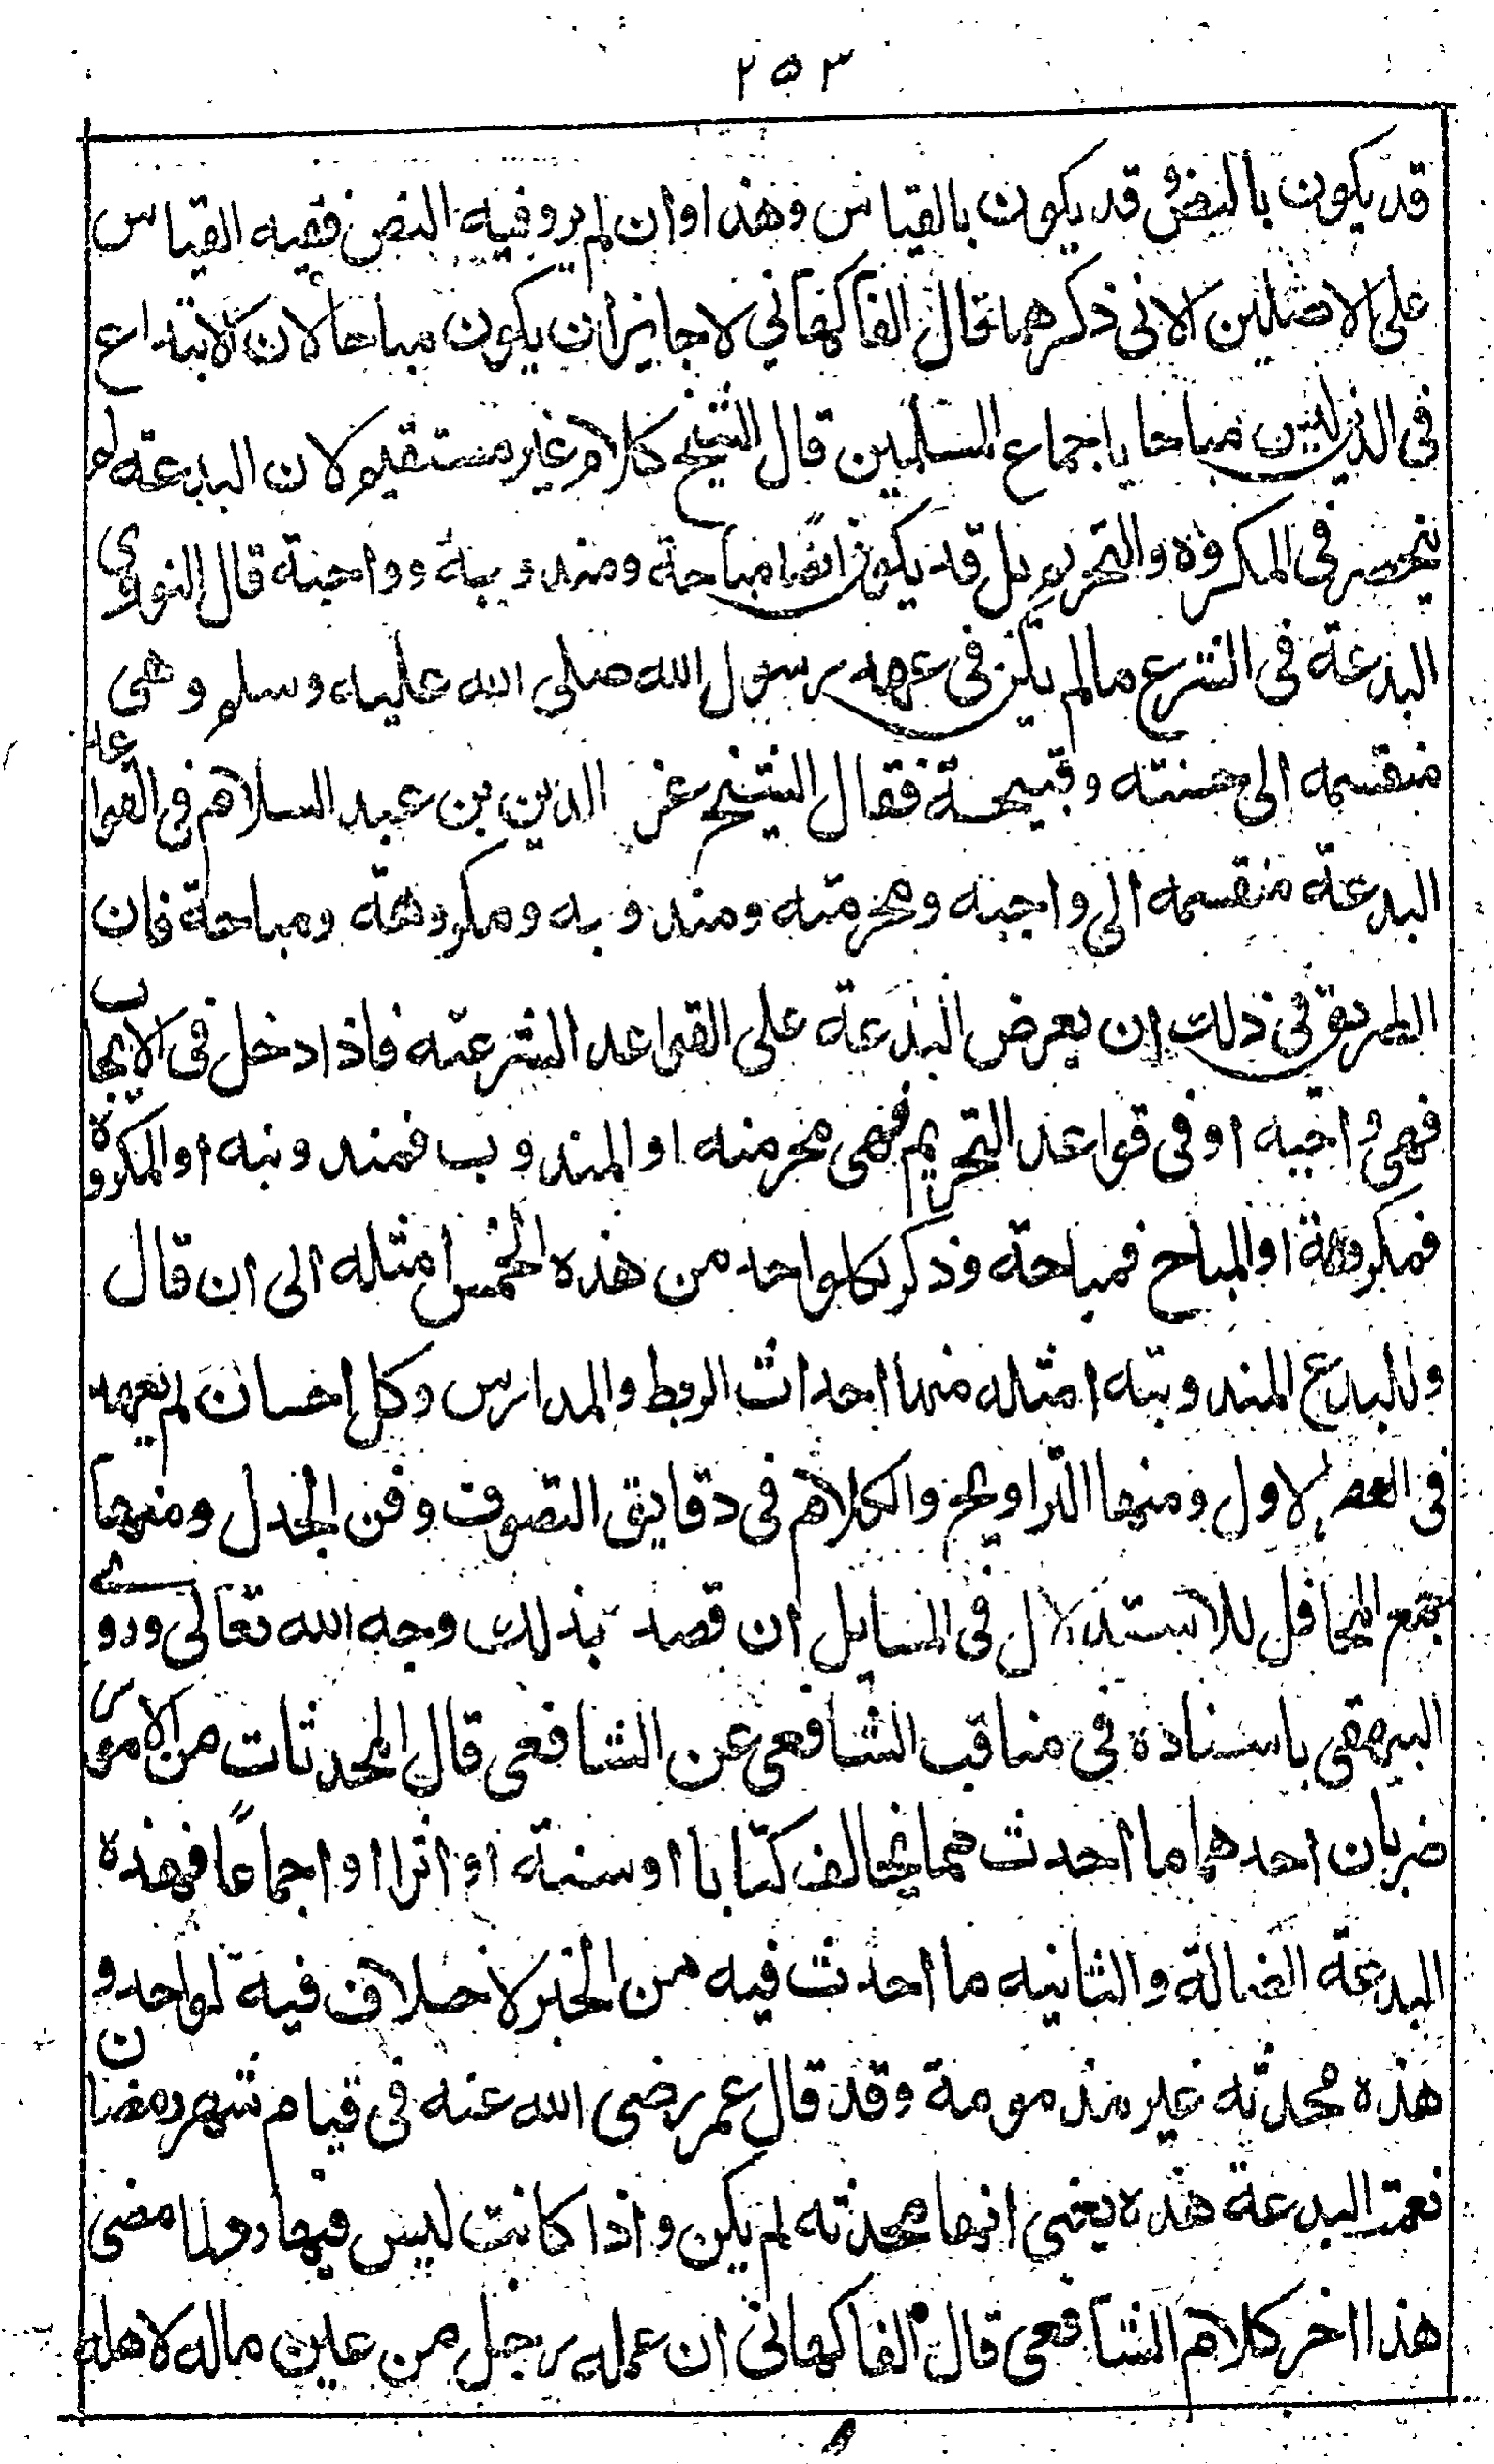 ٢٥٣
قد يكون بالنص وقد يكون بالقياس وهذا وان لم يرو فيه النص ففيه القياس
على الاصلين الاتى ذكرهما قال الفاكهاني لا جايز ان يكون مباحا لان الابتداع
فى الدين ليس مباحا باجماع المسلمين قال الشيخ كلام غير مستقيم لان البدعة لم
ينحصر فى المكروه والتحريم بل قد يكون ايضا مباحة ومندوبة وواجبة قال النووي
البدعة فى الشرع ما لم يكن فى عهد رسول الله صلى الله عليه وسلم وهى
منقسمه الى حسنته وقبيحة فقال الشيخ عز الدين بن عبد السلام فى القواعد
البدعة منقسمه الى واجبه ومحرمته ومندوبه ومكروهة ومباحة فان
الطريق فى ذلك ان يعرض البدعة على القواعد الشرعيه فاذا دخل فى الايجاب
فهى واجبه او فى قواعد التحريم فهى محرمنه او المندوب فمندوبنه او المكروه
فمكروهة او المباح فمباحة وذكر لكل واحد من هذه الخمس امثله الى ان قال
وللبدع المندوبته امثله منها احداث الربط والمدارس وكل احسان لم يعهد
فى العصر الاول ومنها التراويح والكلام فى دقايق التصوف وفن الجدل ومنها
جمع المحافل للاستدلال فى المسايل ان قصد بذلك وجه الله تعالى وروى
البيهقى باسناده فى مناقب الشافعى عن الشافعى قال المحدثات من الامور
ضربان احدهما ما احدث مما يخالف كتابا او سنة او اثرا او اجماعا فهذه
البدعة الضالة والثانيه ما احدث فيه من الخير لا خلاف فيه لواحد و
هذه محدثه غير مذمومة وقد قال عمر رضى الله عنه فى قيام شهر رمضان
نعمت البدعة هذه يعنى انها محدثه لم يكن واذا كانت ليس فيها رد لما مضى
هذا اخر كلام الشافعى قال الفاكهانى ان عمله رجل من عين ماله لاهله